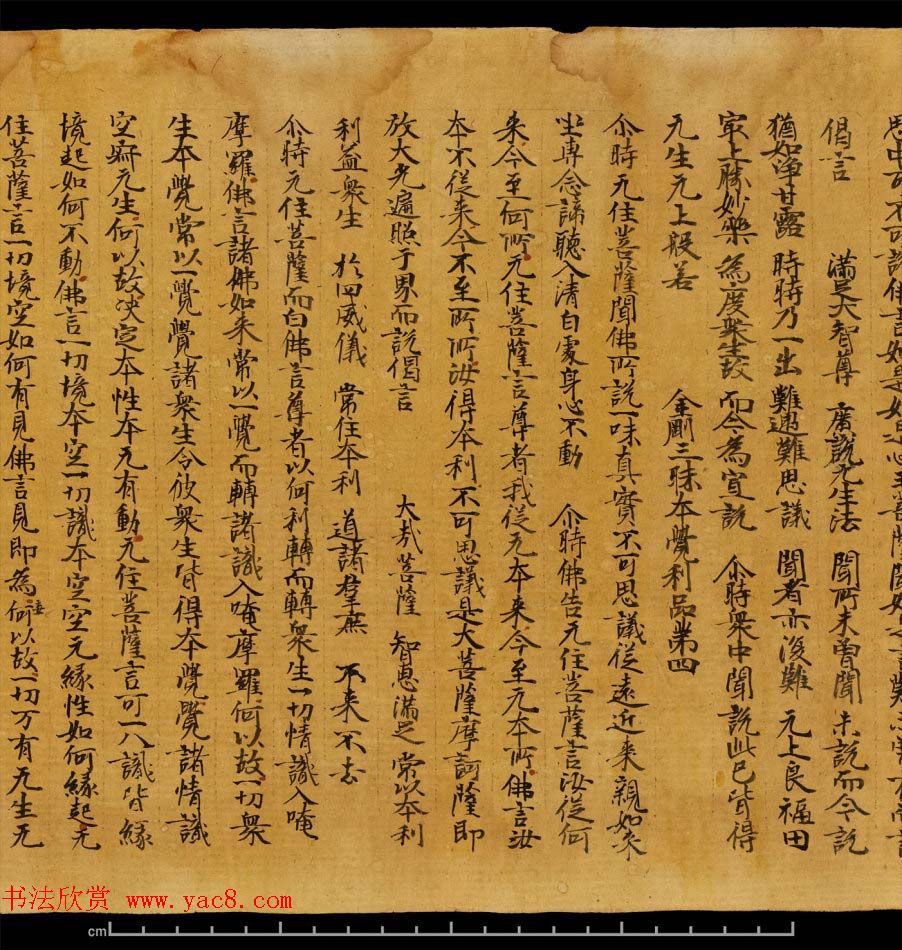 偈言　满足大智尊　廣說无生法　聞所未曾聞　未說而今說
猶如淨甘露　時時乃一出　難遇難思議　聞者亦復難　无上良福田
㝡上勝妙藥　為度衆生故　而今為宣說　尒時衆中聞說此已皆得
无生无上般若　金剛三昧本覺利品第四
尒時无住菩薩聞佛所說一味真實不可思議從遠近来親如来
坐專念諦聽入清白處身心不動　尒時佛告无住菩薩言汝從何
来今至何所无住菩薩言尊者我從无本来今至无本所佛言汝
本不從来今不至所汝得本利不可思議是大菩薩摩訶薩即
放大光遍照千界而說偈言　大哉菩薩　智恵滿足　常以本利
利益衆生　於四威儀　常住本利　導諸羣庶　不来不去
尒時无住菩薩而白佛言尊者以何利轉而轉衆生一切情識入唵
摩羅佛言諸佛如来常以一覺而轉諸識入唵摩羅何以故一切衆
生本覺常以一覺覺諸衆生令彼衆生皆得本覺覺諸情識
空寂无生何以故决定本性本无有動无住菩薩言可一八識皆緣
境起如何不動佛言一切境本空一切識本空空无緣性如何緣起无
住菩薩言一切境空如何有見佛言見即為妄何以故一切万有无生无
书法欣赏 www.yac8.com
cm